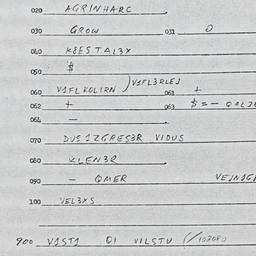 020 AGRINHARC
030 GROW 031 0
040 K8ESTAL3X
050 $
060 V1FLKOLIRN )V1FL3RLEJ 061 +
062 + 063 $=-
064 -
070 DUS1ZGRES3R VIDUS
080 KLEN3R
090 - OMER
100 VEL3XS
900 V1ST1 OI VILSTU